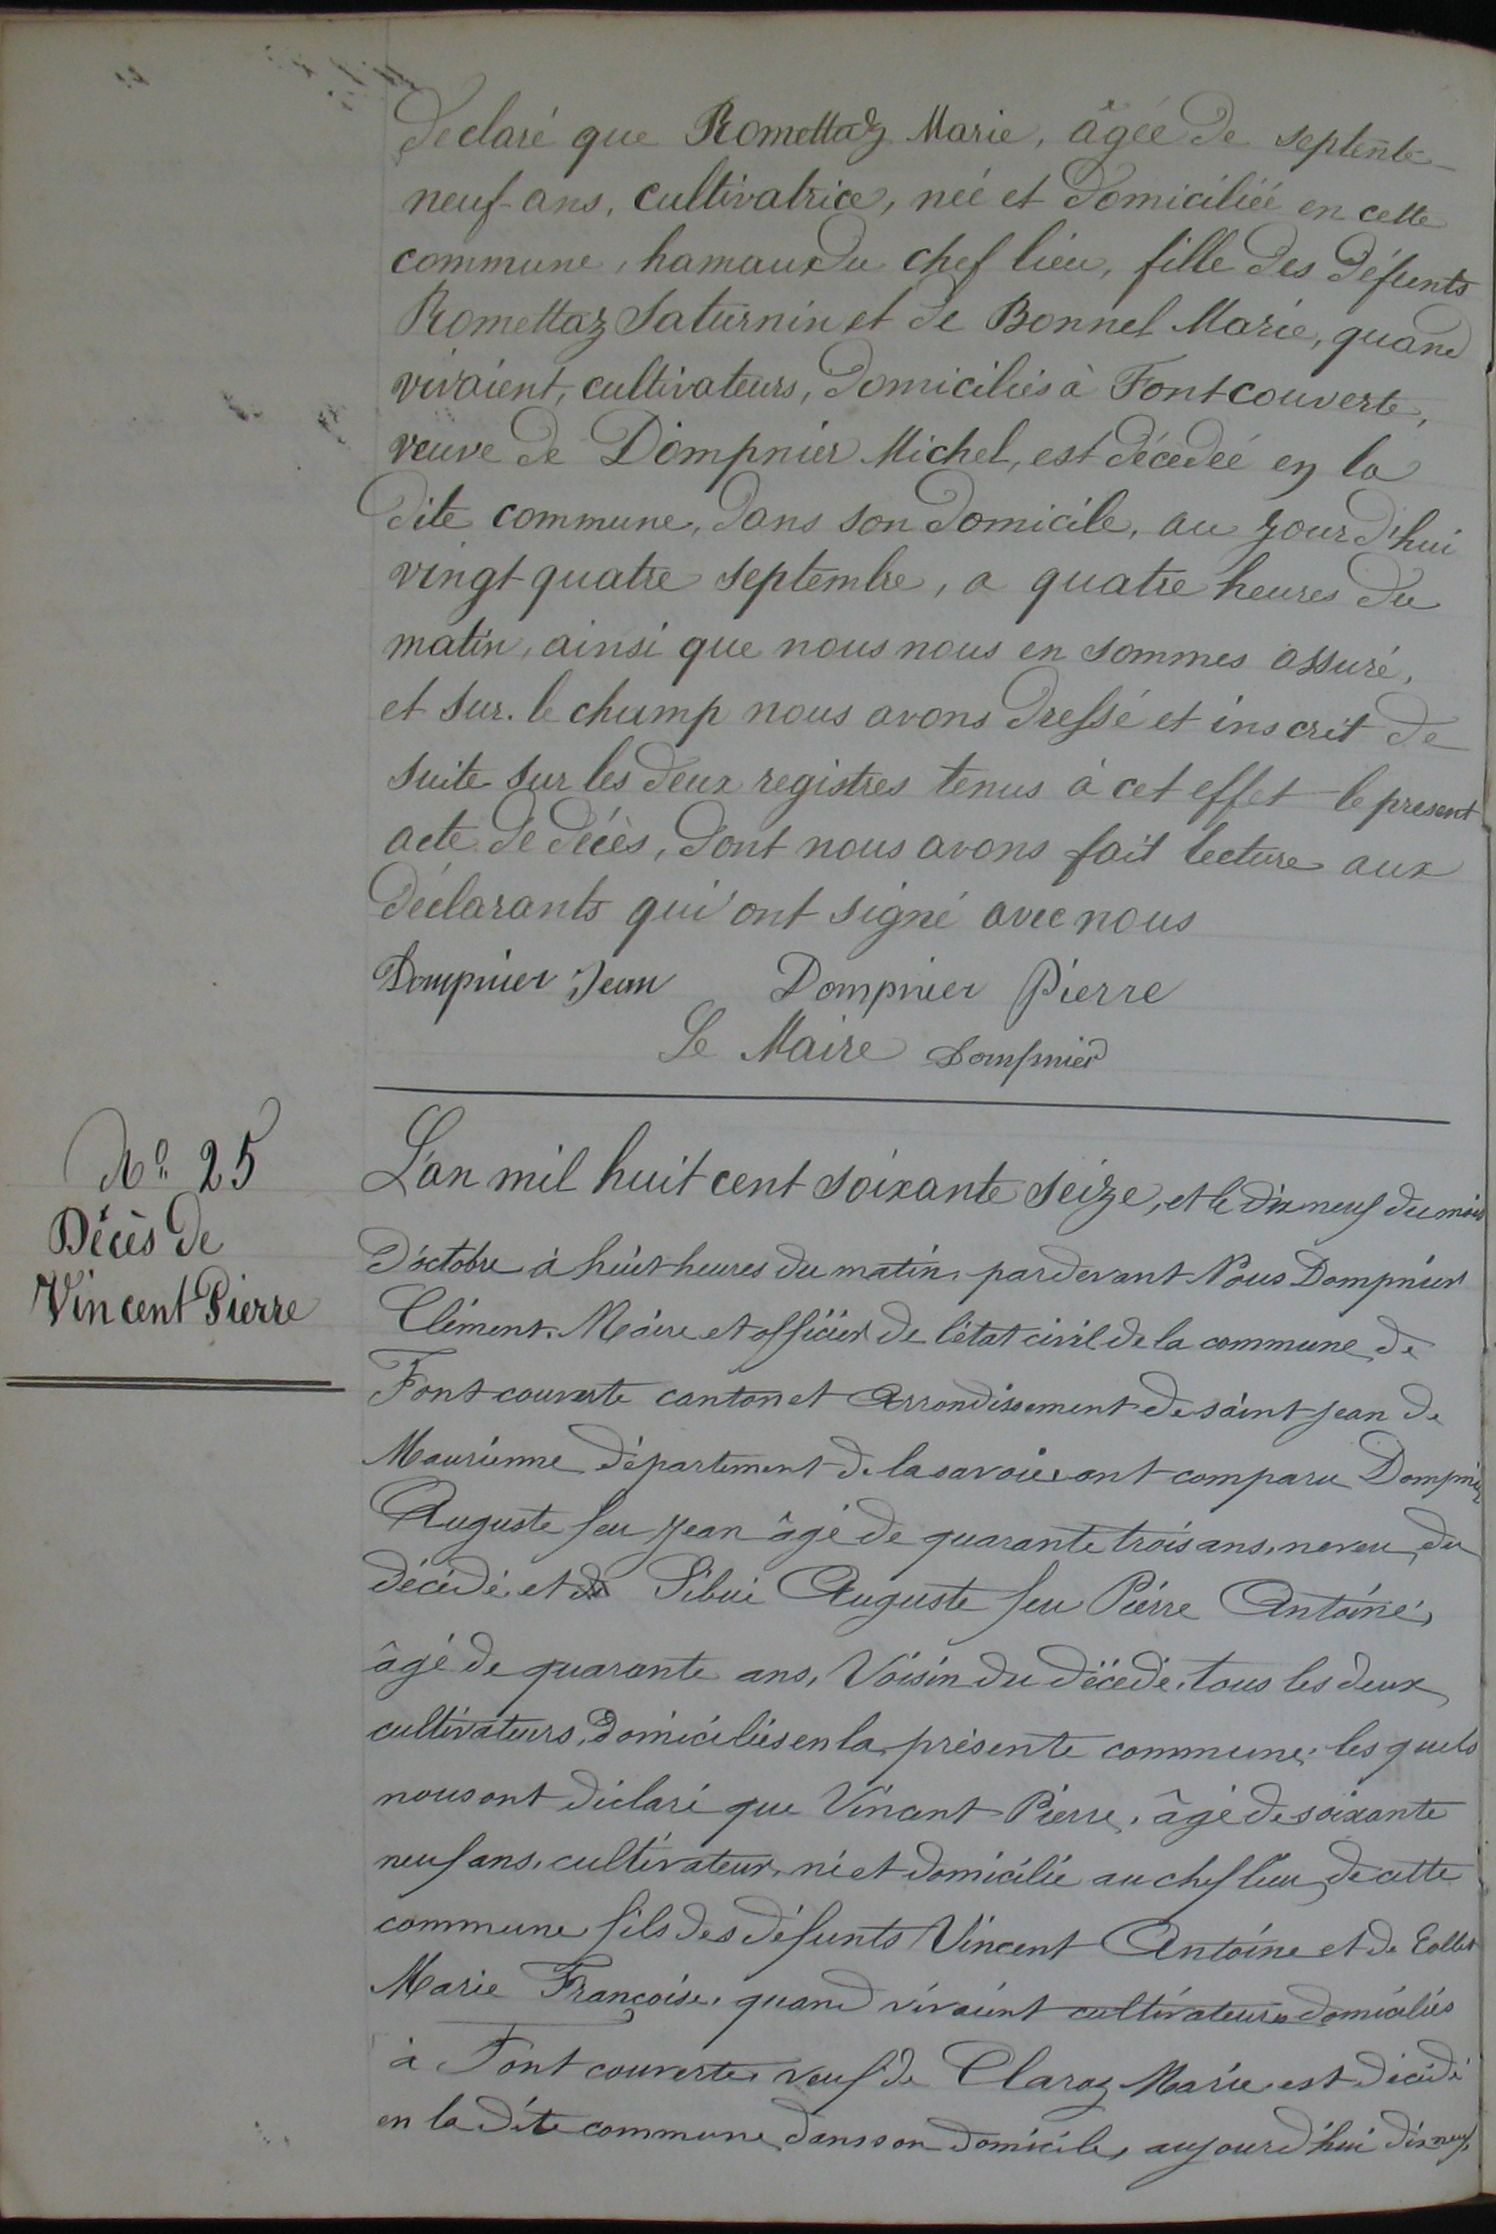 declaré que Romettaz Marie, âgée de septente
neuf ans, cultivatrice, née et domiciliée en cette
commune, hamaux du chef lieu, fille des défunts
Romettaz Saturnin et de Bonnel Marie, quand
vivaient, cultivateurs, domiciliés à Fontcouverte,
veuve de Dompnier Michel, est décedée en la
dite commune, dans son domicile, au jourd'hui
vingt quatre septembre, a quatre heures du
matin, ainsi que nous nous en sommes assuré,
et sur le champ nous avons dressé et inscrit de
suite sur les deux registres tenus à cet effet le present
acte de décès, dont nous avons fait lecture aux
déclarants qui ont signé avec nous
Dompnier Jean Dompnier Pierre
Le Maire Dompnier
N° 25
Décès de
Vincent Pierre
L'an mil huit cent soixante seize, et le dix neuf du mois
d'octobre à huit heures du matin, pardevant Nous Dompnier
Clément, Maire et officier de l'état civil de la commune de
Fontcouverte canton et arrondissement de saint jean de
Maurienne département de la savoie, ont comparu Dompnier
Auguste feu Jean âgé de quarante trois ans, neveu du
décédé et Sibué Auguste feu Pierre Antoine,
âgé de quarante ans, Voisin du décédé, tous les deux
cultivateurs, domiciliés en la présente commune, les quels
nous ont déclaré que Vincent Pierre, âgé de soixante
neuf ans, cultivateur, né et domicilié au chef lieu de cette
commune fils des défunts Vincent Antoine et de Collet
Marie Françoise, quand vivaient cultivateurs domiciliés
à Font couverte, veuf de Claraz Marie est décédé
en la dite commune, dans son domicile, aujourd'hui dix neuf,